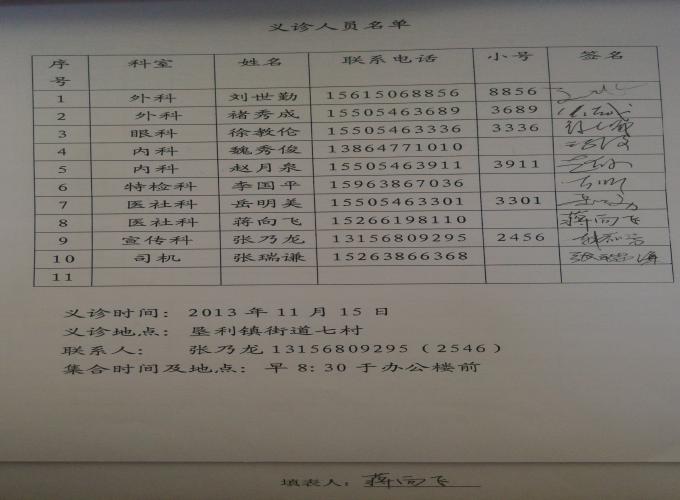 义诊人员名单
序号 科室 姓名 联系电话 小号 签名
1 外科 刘世勤 15615068856 8856
2 外科 褚秀成 15505463689 3689
3 眼科 徐教伦 15505463336 3336
4 内科 魏秀俊 13864771010
5 内科 赵月泉 15505463911 3911
6 特检科 李国平 15963867036
7 医社科 岳明美 15505463301 3301
8 医社科 蒋向飞 15266198110 蒋向飞
9 宣传科 张乃龙 13156809295 2456
10 司机 张瑞谦 15263866368
11
义诊时间: 2013 年 11 月 15 日
义诊地点: 垦利镇街道七村
联系人: 张乃龙 13156809295 (2546)
集合时间及地点: 早 8: 30 于办公楼前
填表人: 蒋向飞